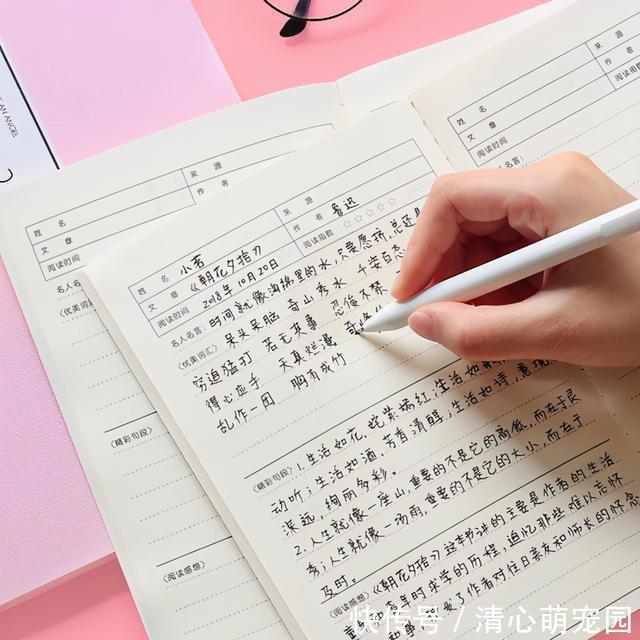 AN ANGEL
姓 名
来 源
文 章
作 者
阅读时间
名人名
《优美词
《精彩句段》
《阅读感想》
姓 名 小若
来 源
文 章 《朝花夕拾》
作 者 鲁迅
阅读时间 2018年10月20日
阅读指数 ☆☆☆☆☆
名人名言: 时间就像海绵里的水,只要愿挤,总还是
《优美词汇》 呆头呆脑 奇山秀水 千姿百态
穷追猛打 若无其事 忍俊不禁
得心应手 天真烂漫
乱作一团 胸有成竹
《精彩句段》 1、生活如花,姹紫嫣红,生活如
动听,生活如酒,芳香清醇,生活如诗,意境
深远,绚丽多彩。
2、人生就像一座山,重要的不是它的高低,而在于灵
秀;人生就像一场雨,重要的不是它的大小,而在于
及时。
《阅读感想》 《朝花夕拾》这本书讲的主要是作者的生活
时求学的历程,追忆那些难以忘怀
了作者对往日亲友和师长的怀念
姓 名
来 源
文 章
作 者
阅读时间
阅读指数
名人名言:
快传号/清心萌宠园